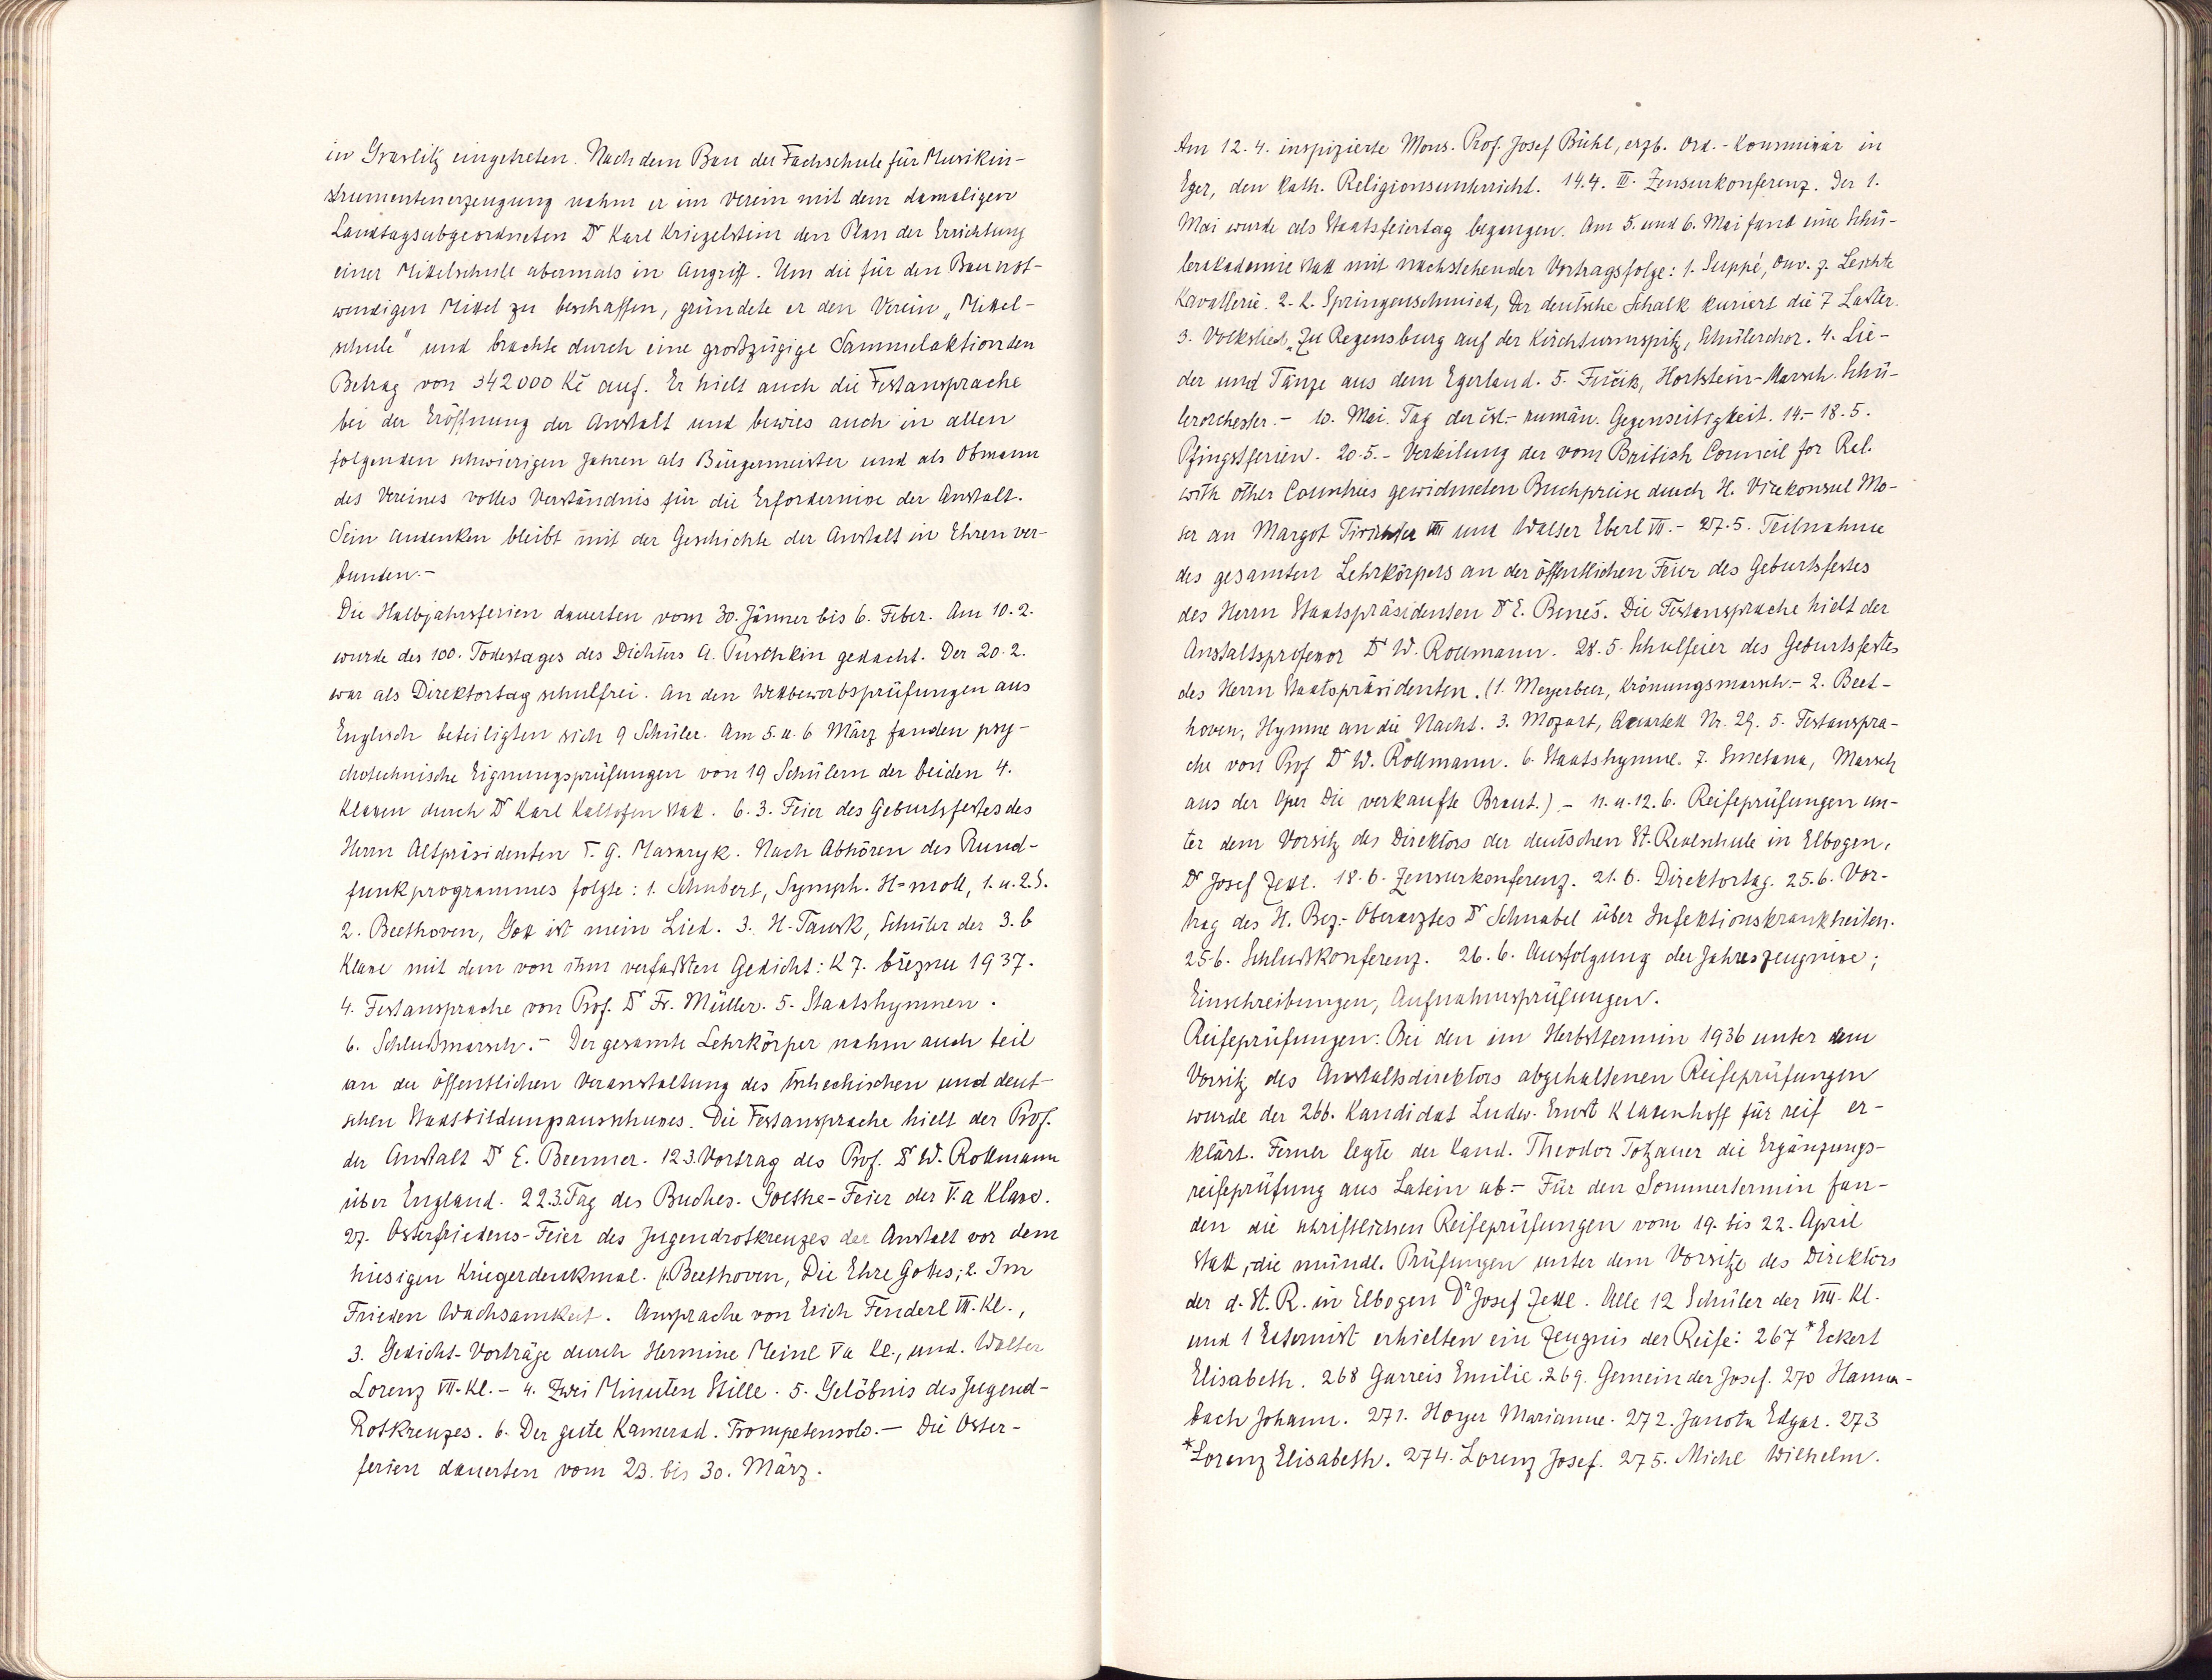 in Graslitz eingetreten. Nach dem Bau der Fachschule für Musikin-
strumentenerzeugung nahm er im Verein mit dem damaligen
Landtagsabgeordneten Dr Karl Kriegelstein den Plan der Errichtung
einer Mittelschule abermals in Angriff. Um die für den Bau not-
wendigen Mittel zu beschaffen, gründete er den Verein „Mittel-
schule" und brachte durch eine großzügige Sammelaktion den
Betrag von 342000 Kč auf. Er hielt auch die Festansprache
bei der Eröffnung der Anstalt und bewies auch in allen
folgenden schwierigen Jahren als Bürgermeister und als Obmann
des Vereines volles Verständnis für die Erfordernisse der Anstalt.
Sein Andenken bleibt mit der Geschichte der Anstalt in Ehren ver-
bunden.-
Die Halbjahrsferien dauerten vom 30. Jänner bis 6. Feber. Am 10.2.
wurde des 100. Todestages des Dichters A. Puschkin gedacht. Der 20.2.
war als Direktortag schulfrei. An den Wettbewerbsprüfungen aus
Englisch beteiligten sich 9 Schüler. Am 5. u. 6 März fanden psy-
chotechnische Eignungsprüfungen von 19 Schülern der beiden 4.
Klassen durch Dr Karl Kaltofen statt. 6.3. Feier des Geburtsfestes des
Herrn Altpräsidenten T. G. Masaryk. Nach Abhören des Rund-
funkprogrammes folgte: 1. Schubert, Symph. H-moll, 1. u. 2. S.
2. Beethoven, Gott ist mein Lied. 3. H. Tausk, Schüler der 3. b
Klasse mit dem von ihm verfaßten Gedicht: K 7. březnu 1937.
4. Festansprache von Prof. Dr Fr. Müller. 5. Staatshymnen.
6. Schlußmarsch.- Der gesamte Lehrkörper nahm auch teil
an der öffentlichen Veranstaltung des tschechischen und deut-
schen Staatsbildungsausschusses. Die Festansprache hielt der Prof.
der Anstalt Dr E. Beemer. 12.3. Vortrag des Prof. Dr W. Rollmann
über England. 22.3. Tag des Buches. Goethe-Feier der V. a Klasse.
27. Osterfriedens-Feier des Jugendrotkreuzes der Anstalt vor dem
hiesigen Kriegerdenkmal. 1. Beethoven, Die Ehre Gottes; 2. Im
Frieden Wachsamkeit. Ansprache von Erich Fenderl VII. Kl.,
3. Gedicht-Vorträge durch Hermine Meinl Va Kl., und. Walter
Lorenz VII. Kl. - 4. Zwei Minuten Stille. 5. Gelöbnis des Jugend-
Rotkreuzes. 6. Der gute Kamerad. Trompetensolo. - Die Oster-
ferien dauerten vom 23. bis 30. März.
Am 12.4. inspizierte Mons. Prof. Josef Bühl, erzb. Ord.-Kommissär in
Eger, den kath. Religionsunterricht. 14.4. III. Zensurkonferenz. Der 1.
Mai wurde als Staatsfeiertag begangen. Am 5. und 6. Mai fand eine Schü-
lerakademie statt mit nachstehender Vortragsfolge: 1. Suppé, Ouv. z. Leichte
Kavallerie. 2. L. Springenschmied, Der deutsche Schalk kuriert die 7 Laster.
3. Volkslied „Zu Regensburg auf der Kirchturmspitz, Schülerchor. 4. Lie-
der und Tänze aus dem Egerland. 5. Fučik, Hortstein-Marsch. Schü-
lerorchester. - 10. Mai. Tag der čsl.- rumän. Gegenseitigkeit. 14.- 18.5.
Pfingstferien. 20.5. - Verteilung der vom British Council for Rel.
with other Countries gewidmeten Buchpreise durch H. Vizekonsul Mo-
ser an Margot VIII und Walter Eberl VII. - 27.5. Teilnahme
des gesamten Lehrkörpers an der öffentlichen Feier des Geburtsfestes
des Herrn Staatspräsidenten Dr E. Beneš. Die Festansprache hielt der
Anstaltsprofessor Dr W. Rollmann. 28.5. Schulfeier des Geburtsfestes
des Herrn Staatspräsidenten. (1. Meyerbeer, Krönungsmarsch.- 2. Beet-
hoven, Hymne an die Nacht. 3. Mozart, Quartett Nr. 29. 5. Festanspra-
che von Prof Dr W. Rollmann. 6. Staatshymne. 7. Smetana, Marsch
aus der Oper Die verkaufte Braut.) - 11. u. 12. 6. Reifeprüfungen un-
ter dem Vorsitz des Direktors der deutschen St. Realschule in Elbogen,
Dr Josef Zettl. 18.6. Zensurkonferenz. 21.6. Direktortag. 25.6. Vor-
trag des H. Bez.-Oberarztes Dr Schnabel über Infektionskrankheiten.
25.6. Schlußkonferenz. 26.6. Ausfolgung der Jahreszeugnisse;
Einschreibungen, Aufnahmsprüfungen.
Reifeprüfungen: Bei den im Herbsttermin 1936 unter dem
Vorsitz des Anstaltsdirektors abgehaltenen Reifeprüfungen
wurde der 266. Kandidat Ludw. Ernst Klasenhoff für reif er-
klärt. Ferner legte der Kand. Theodor Totzauer die Ergänzungs-
reifeprüfung aus Latein ab. - Für den Sommertermin fan-
den die schriftlichen Reifeprüfungen vom 19. bis 22. April
statt, die mündl. Prüfungen unter dem Vorsitze des Direktors
der d. St. R. in Elbogen Dr Josef Zettl. Alle 12 Schüler der VIII. Kl.
und 1 Externist erhielten ein Zeugnis der Reife: 267 *Eckert
Elisabeth. 268 Garreis Emilie. 269. Gemeinder Josef. 270 Hamm-
bach Johann. 271. Hoyer Marianne. 272. Janota Edgar. 273
*Lorenz Elisabeth. 274. Lorenz Josef. 275. Michl Wilhelm.